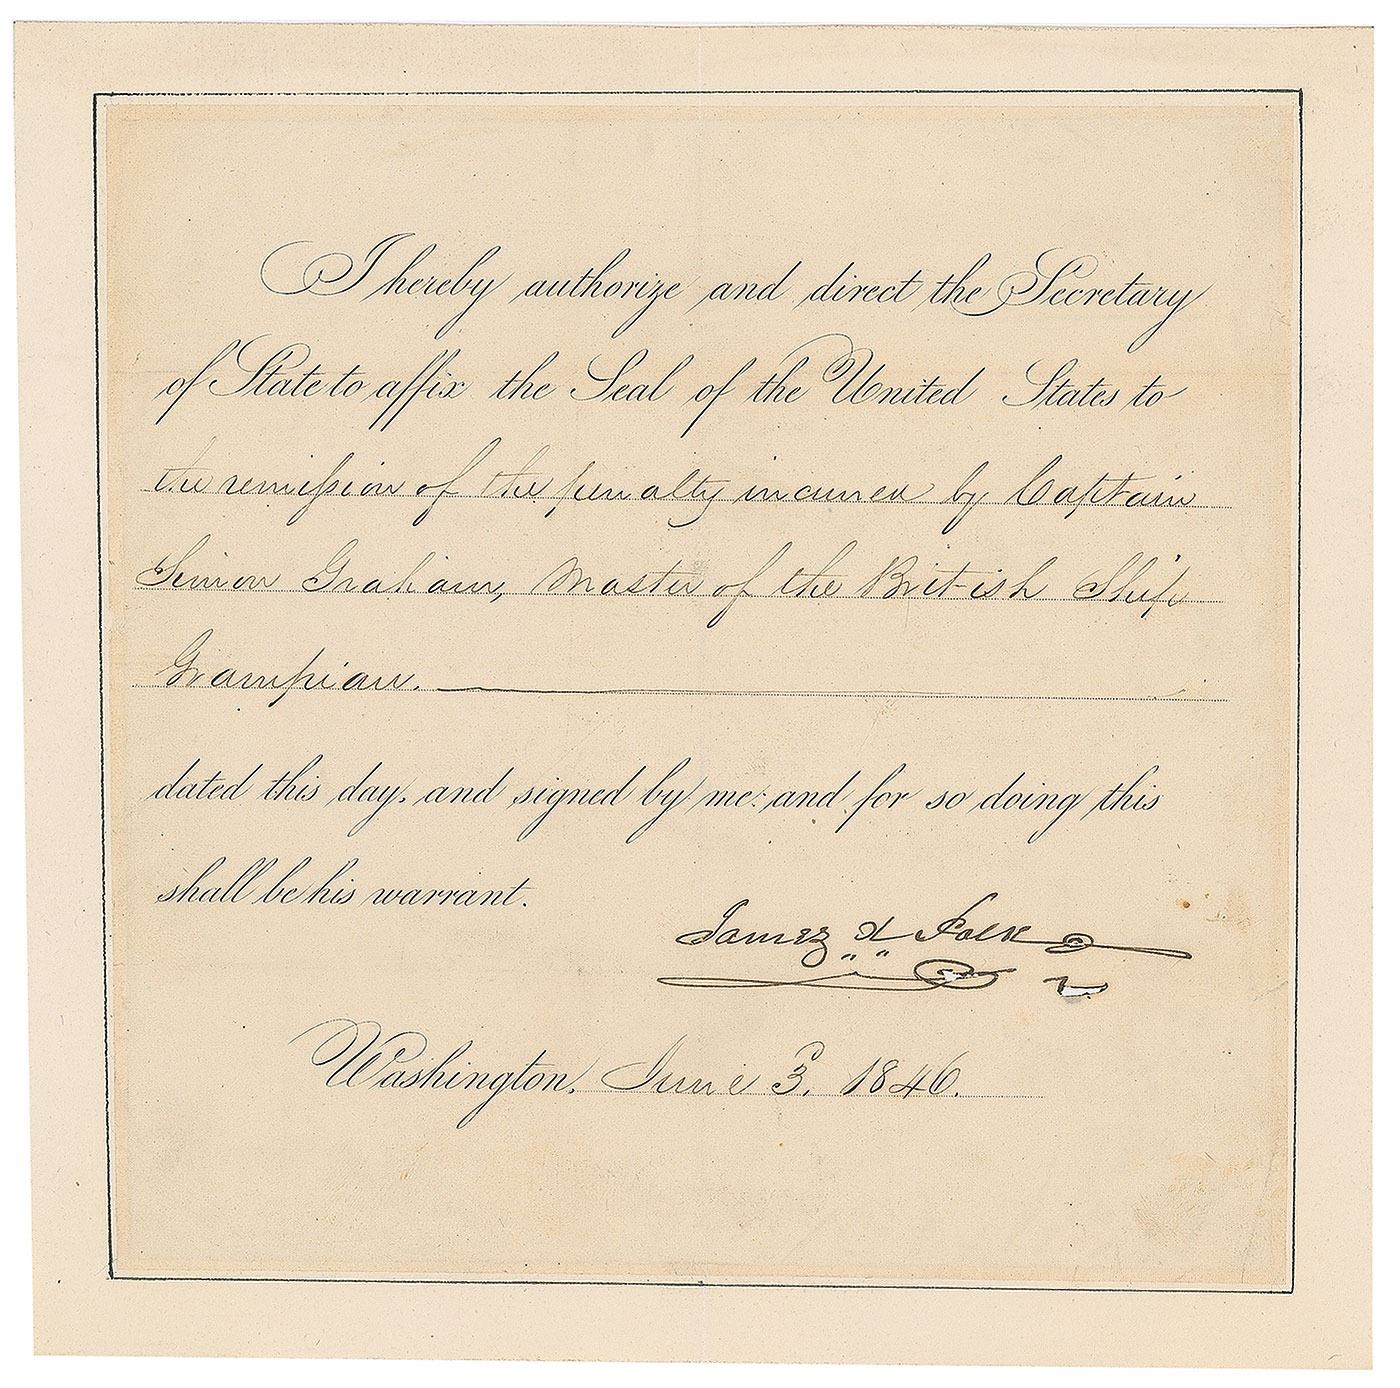 I hereby authorize and direct the Secretary
of State to affix the Seal of the United States to
the remission of the penalty incurred by Captain
Simon Graham, Master of the British Ship
Grampian.
dated this day, and signed by me: and for so doing this
shall be his warrant.
James K Polk
Washington, June 3, 1846.